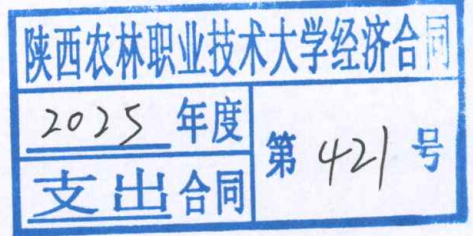 陕西农林职业技术大学经济合同
2025 年度
支出合同
第 421 号